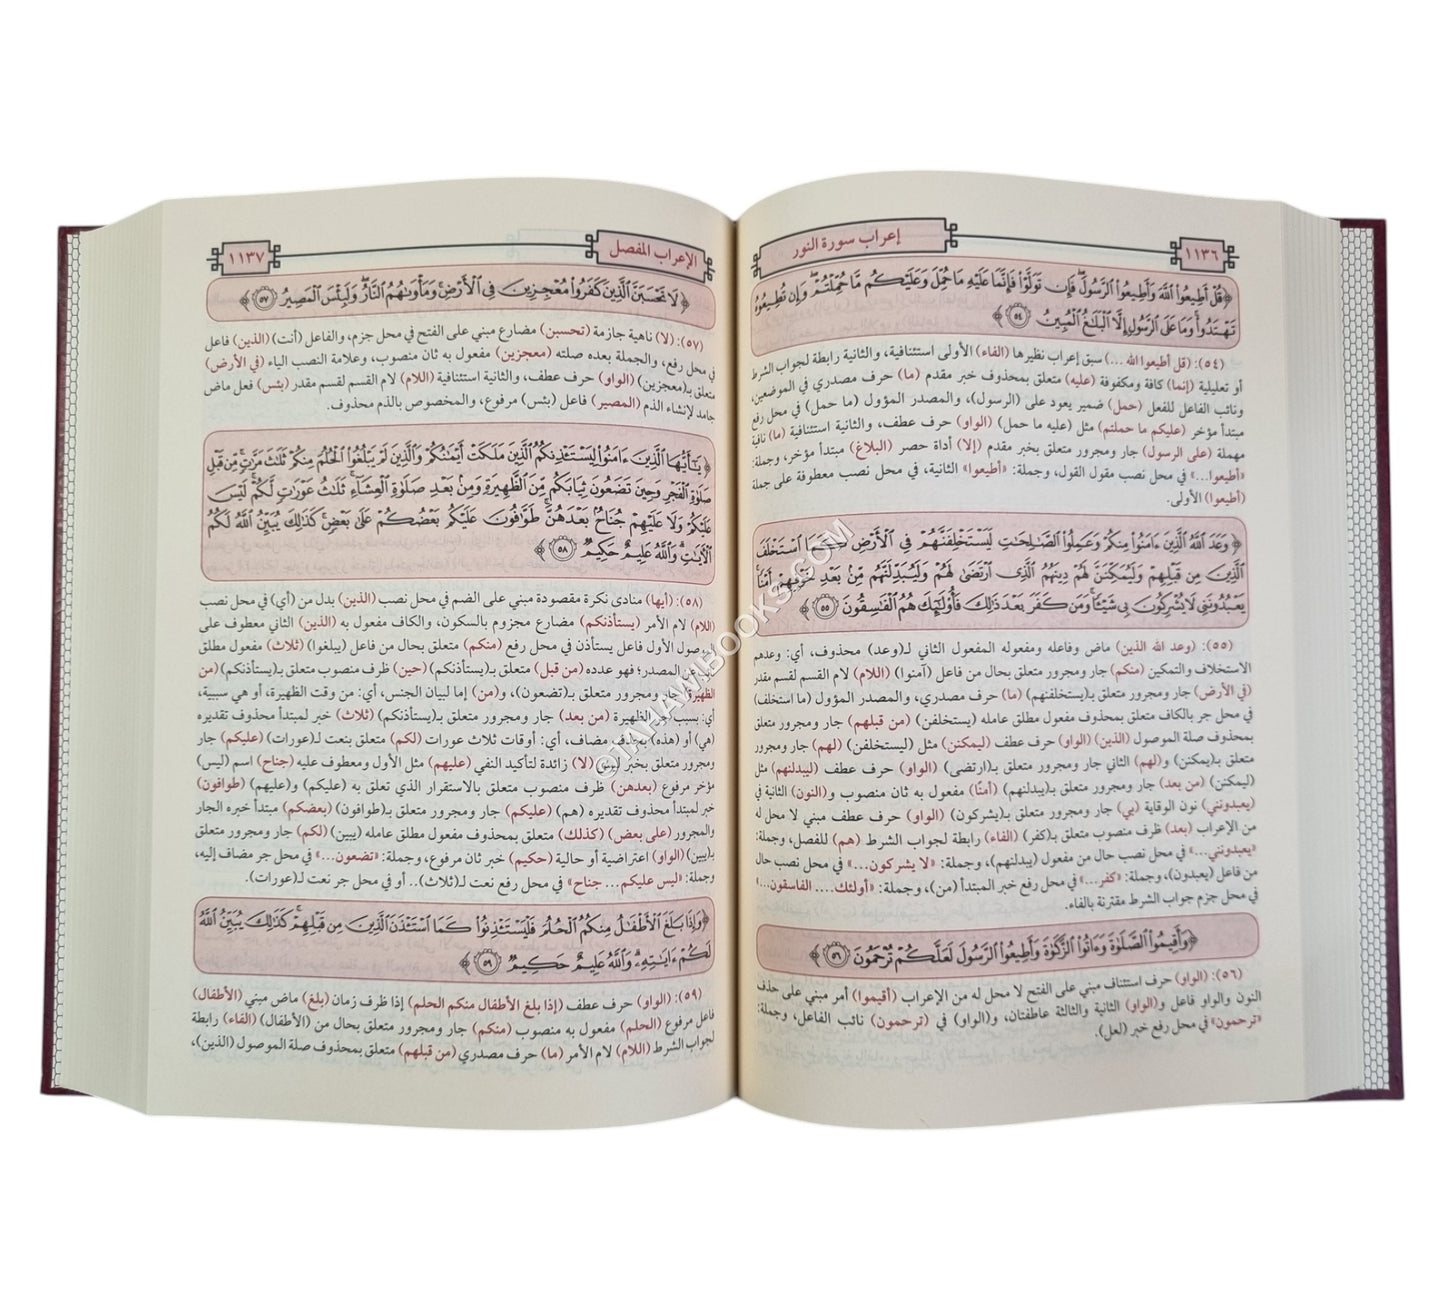 ١١٣٦
إعراب سورة النور
﴿قُلْ أَطِيعُوا۟ ٱللَّهَ وَأَطِيعُوا۟ ٱلرَّسُولَ ۖ فَإِن تَوَلَّوْا۟ فَإِنَّمَا عَلَيْهِ مَا حُمِّلَ وَعَلَيْكُم مَّا حُمِّلْتُمْ ۖ وَإِن تُطِيعُوهُ
تَهْتَدُوا۟ ۚ وَمَا عَلَى ٱلرَّسُولِ إِلَّا ٱلْبَلَـٰغُ ٱلْمُبِينُ ٥٤﴾
(٥٤): (قل أطيعوا الله ...) سبق إعراب نظيرها (الفاء) الأولى استئنافية، والثانية رابطة لجواب الشرط
أو تعليلية (إنما) كافة ومكفوفة (عليه) متعلق بمحذوف خبر مقدم (ما) حرف مصدري في الموضعين،
ونائب الفاعل للفعل (حمل) ضمير يعود على (الرسول)، والمصدر المؤول (ما حمل) في محل رفع
مبتدأ مؤخر (عليكم ما حملتم) مثل (عليه ما حمل) (الواو) حرف عطف، والثانية استئنافية (ما) نافية
مهملة (على الرسول) جار ومجرور متعلق بخبر مقدم (إلا) أداة حصر (البلاغ) مبتدأ مؤخر، وجملة:
«أطيعوا...» في محل نصب مقول القول، وجملة: «أطيعوا» الثانية، في محل نصب معطوفة على جملة
(أطيعوا) الأولى.
﴿وَعَدَ ٱللَّهُ ٱلَّذِينَ ءَامَنُوا۟ مِنكُمْ وَعَمِلُوا۟ ٱلصَّـٰلِحَـٰتِ لَيَسْتَخْلِفَنَّهُمْ فِى ٱلْأَرْضِ كَمَا ٱسْتَخْلَفَ
ٱلَّذِينَ مِن قَبْلِهِمْ وَلَيُمَكِّنَنَّ لَهُمْ دِينَهُمُ ٱلَّذِى ٱرْتَضَىٰ لَهُمْ وَلَيُبَدِّلَنَّهُم مِّنۢ بَعْدِ خَوْفِهِمْ أَمْنًا ۚ
يَعْبُدُونَنِى لَا يُشْرِكُونَ بِى شَيْـًٔا ۚ وَمَن كَفَرَ بَعْدَ ذَٰلِكَ فَأُو۟لَـٰٓئِكَ هُمُ ٱلْفَـٰسِقُونَ ٥٥﴾
(٥٥): (وعد الله الذين) ماض وفاعله ومفعوله المفعول الثاني لـ(وعد) محذوف، أي: وعدهم
الاستخلاف والتمكين (منكم) جار ومجرور متعلق بحال من فاعل (آمنوا) (اللام) لام القسم لقسم مقدر
(في الأرض) جار ومجرور متعلق بـ(يستخلفنهم) (ما) حرف مصدري، والمصدر المؤول (ما استخلف)
في محل جر بالكاف متعلق بمحذوف مفعول مطلق عامله (يستخلفن) (من قبلهم) جار ومجرور متعلق
بمحذوف صلة الموصول (الذين) (الواو) حرف عطف (ليمكنن) مثل (ليستخلفن) (لهم) جار ومجرور
متعلق بـ(يمكنن) و(لهم) الثاني جار ومجرور متعلق بـ(ارتضى) (الواو) حرف عطف (ليبدلنهم) مثل
(ليمكنن) (من بعد) جار ومجرور متعلق بـ(يبدلنهم) (أمنًا) مفعول به ثان منصوب و(النون) الثانية في
(يعبدونني) نون الوقاية (بي) جار ومجرور متعلق بـ(يشركون) (الواو) حرف عطف مبني لا محل له
من الإعراب (بعد) ظرف منصوب متعلق بـ(كفر) (الفاء) رابطة لجواب الشرط (هم) للفصل، وجملة:
«يعبدونني...» في محل نصب حال من مفعول (يبدلنهم)، وجملة: «لا يشركون...» في محل نصب حال
من فاعل (يعبدون)، وجملة: «كفر...» في محل رفع خبر المبتدأ (من)، وجملة: «أولئك.... الفاسقون...»
في محل جزم جواب الشرط مقترنة بالفاء.
﴿وَأَقِيمُوا۟ ٱلصَّلَوٰةَ وَءَاتُوا۟ ٱلزَّكَوٰةَ وَأَطِيعُوا۟ ٱلرَّسُولَ لَعَلَّكُمْ تُرْحَمُونَ ٥٦﴾
(٥٦): (الواو) حرف استئناف مبني على الفتح لا محل له من الإعراب (أقيموا) أمر مبني على حذف
النون والواو فاعل و(الواو) الثانية والثالثة عاطفتان، و(الواو) في (ترحمون) نائب الفاعل، وجملة:
«ترحمون» في محل رفع خبر (لعل).
الإعراب المفصل
١١٣٧
﴿لَا تَحْسَبَنَّ ٱلَّذِينَ كَفَرُوا۟ مُعْجِزِينَ فِى ٱلْأَرْضِ ۚ وَمَأْوَىٰهُمُ ٱلنَّارُ ۖ وَلَبِئْسَ ٱلْمَصِيرُ ٥٧﴾
(٥٧): (لا) ناهية جازمة (تحسبن) مضارع مبني على الفتح في محل جزم، والفاعل (أنت) (الذين) فاعل
في محل رفع، والجملة بعده صلته (معجزين) مفعول به ثان منصوب، وعلامة النصب الياء (في الأرض)
متعلق بـ(معجزين) (الواو) حرف عطف، والثانية استئنافية (اللام) لام القسم لقسم مقدر (بئس) فعل ماض
جامد لإنشاء الذم (المصير) فاعل (بئس) مرفوع، والمخصوص بالذم محذوف.
﴿يَـٰٓأَيُّهَا ٱلَّذِينَ ءَامَنُوا۟ لِيَسْتَـْٔذِنكُمُ ٱلَّذِينَ مَلَكَتْ أَيْمَـٰنُكُمْ وَٱلَّذِينَ لَمْ يَبْلُغُوا۟ ٱلْحُلُمَ مِنكُمْ ثَلَـٰثَ مَرَّٰتٍ ۚ مِّن قَبْلِ
صَلَوٰةِ ٱلْفَجْرِ وَحِينَ تَضَعُونَ ثِيَابَكُم مِّنَ ٱلظَّهِيرَةِ وَمِنۢ بَعْدِ صَلَوٰةِ ٱلْعِشَآءِ ۚ ثَلَـٰثُ عَوْرَٰتٍ لَّكُمْ ۚ لَيْسَ
عَلَيْكُمْ وَلَا عَلَيْهِمْ جُنَاحٌۢ بَعْدَهُنَّ ۚ طَوَّٰفُونَ عَلَيْكُم بَعْضُكُمْ عَلَىٰ بَعْضٍ ۚ كَذَٰلِكَ يُبَيِّنُ ٱللَّهُ لَكُمُ
ٱلْـَٔايَـٰتِ ۗ وَٱللَّهُ عَلِيمٌ حَكِيمٌ ٥٨﴾
(٥٨): (أيها) منادى نكرة مقصودة مبني على الضم في محل نصب (الذين) بدل من (أي) في محل نصب
(اللام) لام الأمر (يستأذنكم) مضارع مجزوم بالسكون، والكاف مفعول به (الذين) الثاني معطوف على
الموصول الأول فاعل يستأذن في محل رفع (منكم) متعلق بحال من فاعل (يبلغوا) (ثلاث) مفعول مطلق
عن المصدر؛ فهو عدده (من قبل) متعلق بـ(يستأذنكم) (حين) ظرف منصوب متعلق بـ(يستأذنكم) (من
الظهيرة) جار ومجرور متعلق بـ(تضعون)، و(من) إما لبيان الجنس، أي: من وقت الظهيرة، أو هي سببية،
أي: بسبب حر الظهيرة (من بعد) جار ومجرور متعلق بـ(يستأذنكم) (ثلاث) خبر لمبتدأ محذوف تقديره
(هي) أو (هذه) بحذف مضاف، أي: أوقات ثلاث عورات (لكم) متعلق بنعت لـ(عورات) (عليكم) جار
ومجرور متعلق بخبر ليس (لا) زائدة لتأكيد النفي (عليهم) مثل الأول ومعطوف عليه (جناح) اسم (ليس)
مؤخر مرفوع (بعدهن) ظرف منصوب متعلق بالاستقرار الذي تعلق به (عليكم) و(عليهم) (طوافون)
خبر لمبتدأ محذوف تقديره (هم) (عليكم) جار ومجرور متعلق بـ(طوافون) (بعضكم) مبتدأ خبره الجار
والمجرور (على بعض) (كذلك) متعلق بمحذوف مفعول مطلق عامله (يبين) (لكم) جار ومجرور متعلق
بـ(يبين) (الواو) اعتراضية أو حالية (حكيم) خبر ثان مرفوع، وجملة: «تضعون...» في محل جر مضاف إليه،
وجملة: «ليس عليكم... جناح» في محل رفع نعت لـ(ثلاث).. أو في محل جر نعت لـ(عورات).
﴿وَإِذَا بَلَغَ ٱلْأَطْفَـٰلُ مِنكُمُ ٱلْحُلُمَ فَلْيَسْتَـْٔذِنُوا۟ كَمَا ٱسْتَـْٔذَنَ ٱلَّذِينَ مِن قَبْلِهِمْ ۚ كَذَٰلِكَ يُبَيِّنُ ٱللَّهُ
لَكُمْ ءَايَـٰتِهِۦ ۗ وَٱللَّهُ عَلِيمٌ حَكِيمٌ ٥٩﴾
(٥٩): (الواو) حرف عطف (إذا بلغ الأطفال منكم الحلم) إذا ظرف زمان (بلغ) ماض مبني (الأطفال)
فاعل مرفوع (الحلم) مفعول به منصوب (منكم) جار ومجرور متعلق بحال من (الأطفال) (الفاء) رابطة
لجواب الشرط (اللام) لام الأمر (ما) حرف مصدري (من قبلهم) متعلق بمحذوف صلة الموصول (الذين)،
©JAHAWIBOOKS.COM